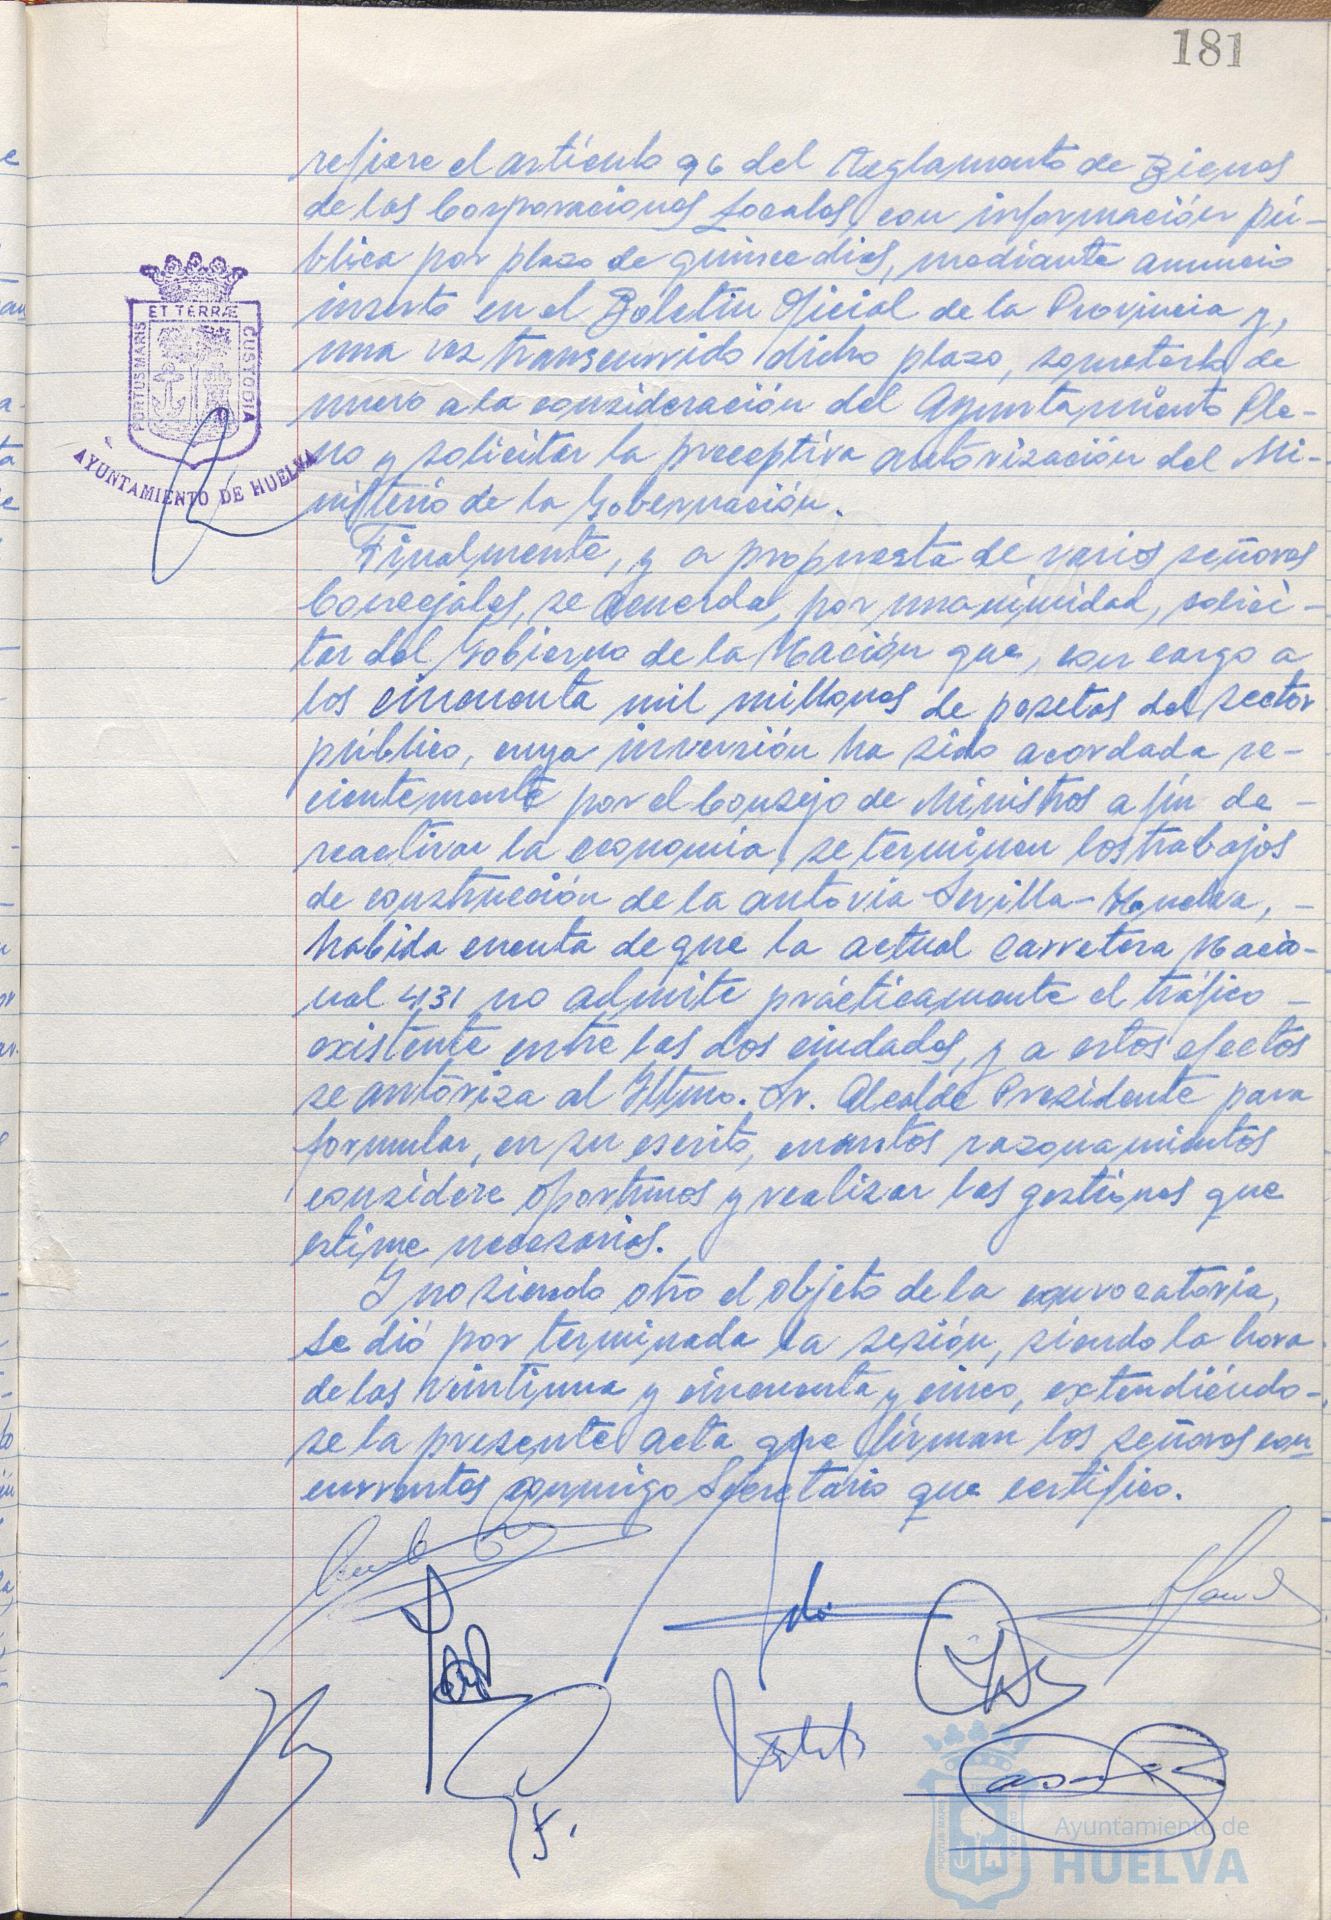 181
refiere el artículo 96 del Reglamento de Bienes
de las Corporaciones Locales, con información pú-
blica por plazo de quince dias, mediante anuncio
inserto en el Boletín Oficial de la Provincia y,
una vez transcurrido dicho plazo, someterlo de
nuevo a la consideración del Ayuntamiento Ple-
no y solicitar la preceptiva autorización del Mi-
nisterio de la Gobernación.
Finalmente, y a propuesta de varios señores
Concejales, se acuerda, por unanimidad, solici-
tar del Gobierno de la Nación que, con cargo a
los cincuenta mil millones de pesetas del sector
público, cuya inversión ha sido acordada re-
cientemente por el Consejo de Ministros a fin de -
reactivar la economía, se terminen los trabajos
de construcción de la autovía Sevilla-Huelva, -
habida cuenta de que la actual Carretera Nacio-
nal 431 no admite prácticamente el tráfico -
existente entre las dos ciudades, y a estos efectos
se autoriza al Iltmo. Sr. Alcalde Presidente para
formular, en su escrito, cuantos razonamientos
considere oportunos y realizar las gestiones que
estime necesarias.
Y no siendo otro el objeto de la convocatoria,
se dió por terminada la sesión, siendo la hora
de las veintiuna y cincuenta y cinco, extendiéndo-
se la presente acta que firman los señores con
currentes conmigo Secretario que certifico.
PORTUS MARIS
ET TERRÆ
CUSTODIA
AYUNTAMIENTO DE HUELVA
Ayuntamiento de
HUELVA